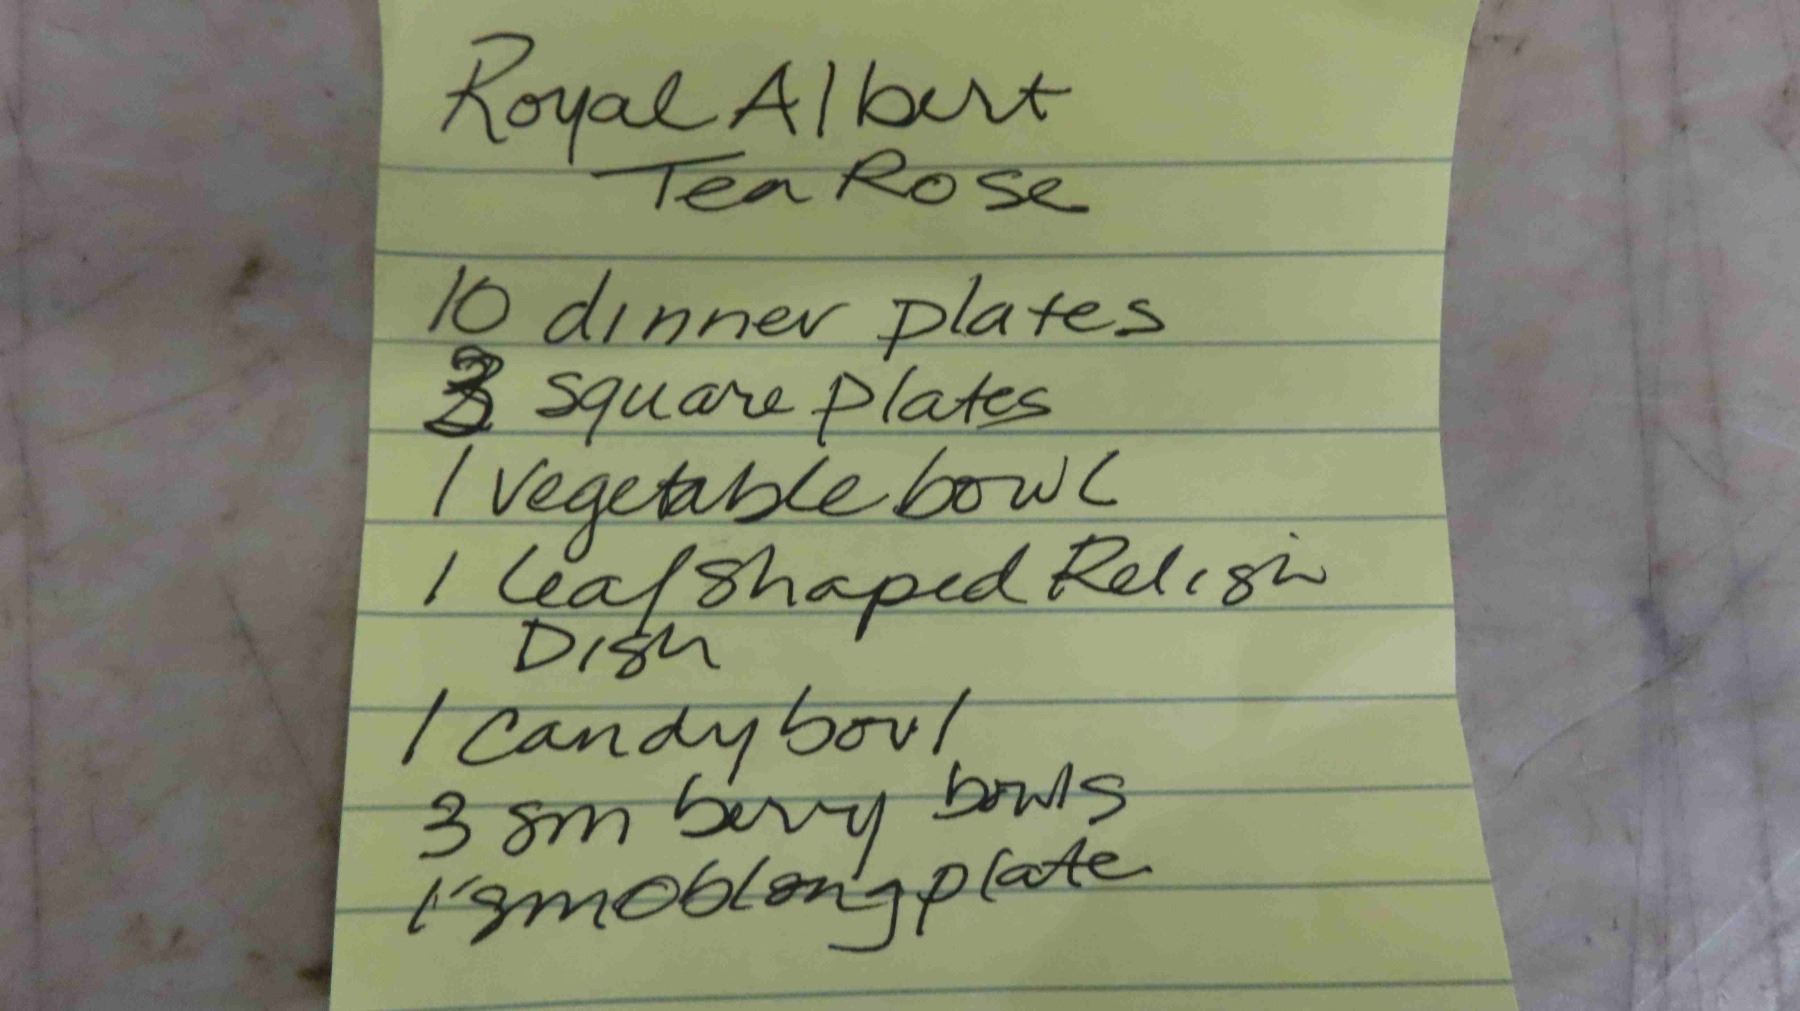 Royal Albert
Tea Rose
10 dinner plates
square plates
1 vegetable bowl
1 leaf shaped Relish
Dish
1 candy bowl
3 sm berry bowls
1 sm oblong plate